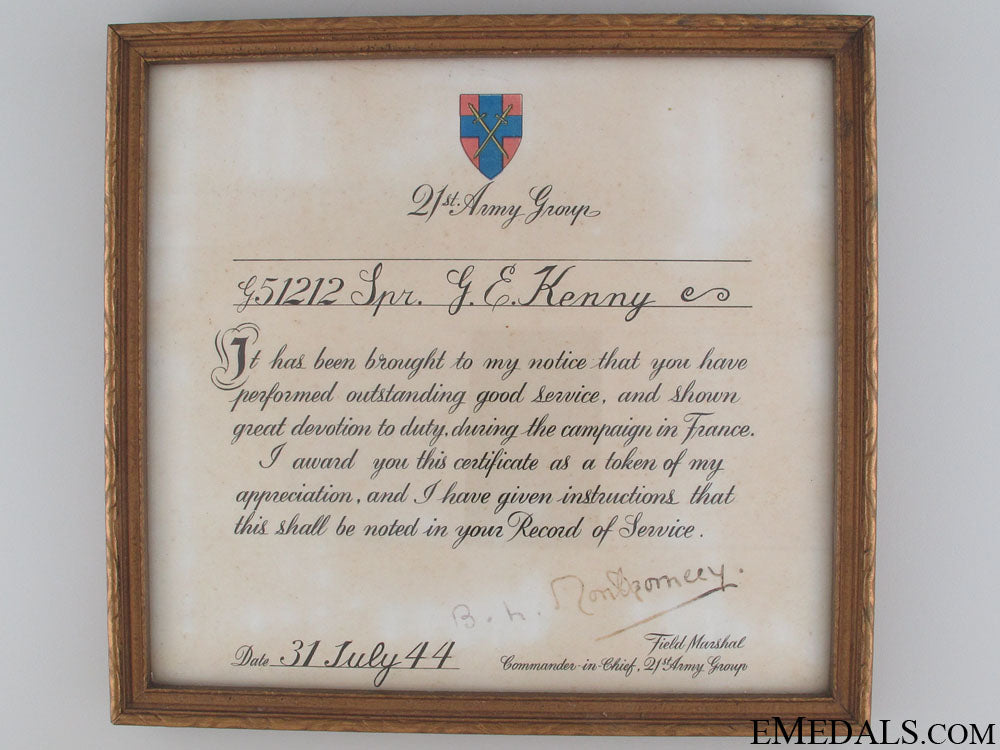 21st. Army Group
G51212 Spr. G. E. Kenny
It has been brought to my notice that you have
performed outstanding good service, and shown
great devotion to duty, during the campaign in France.
I award you this certificate as a token of my
appreciation, and I have given instructions that
this shall be noted in your Record of Service.
B. L. Montgomery.
Date 31 July 44
Field Marshal
Commander-in-Chief, 21st Army Group
EMEDALS.COM